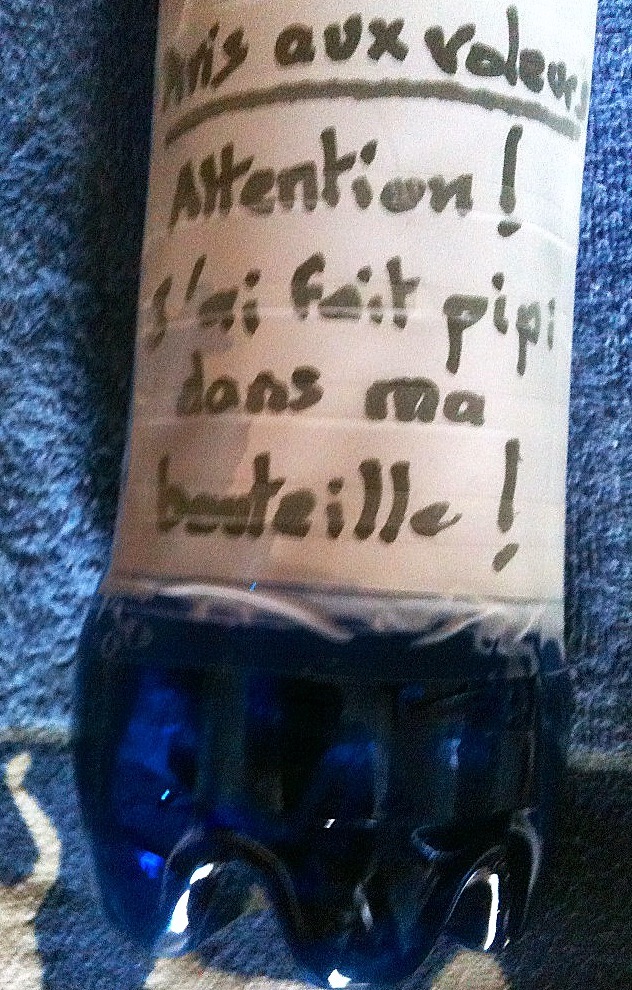 Avis aux voleurs
Attention !
J'ai fait pipi
dans ma
bouteille !